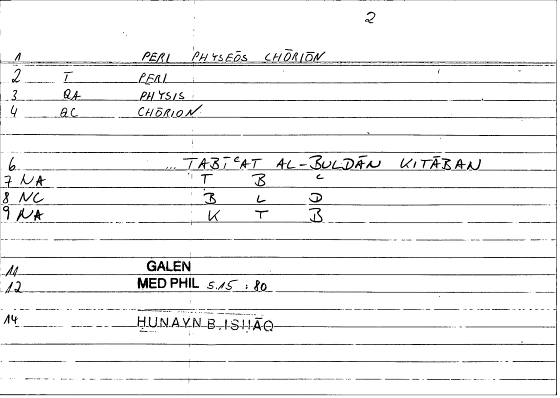 2
1 PERI PHYSEŌS CHŌRIŌN
2 T PERI
3 QA PHYSIS
4 QC CHŌRION
6 ...TABĪʿAT AL-BULDĀN KITĀBAN
7 NA T B ʿ
8 NC B L D
9 NA K T B
11 GALEN
12 MED PHIL 5.15 : 80
14 ḤUNAYN B. ISḤĀQ